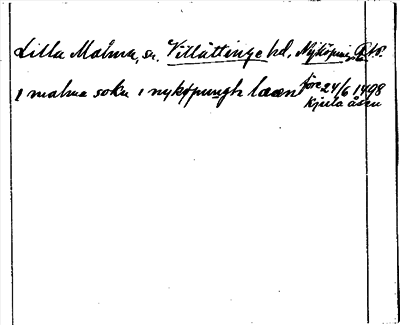 Lilla Malma, sn. Villåttinge hd. Nyköpings
i malma sokn i nykøpungh læen före 24/6 1498
Kjula åsen